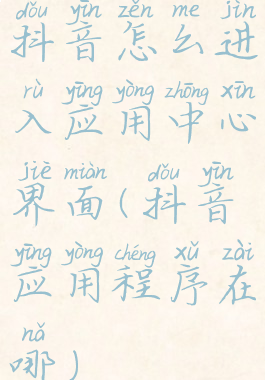 dǒu yīn zěn me jìn
抖音怎么进
rù yīng yòng zhōng xīn
入应用中心
jiè miàn dǒu yīn
界面(抖音
yīng yòng chéng xǔ zài
应用程序在
nǎ
哪)